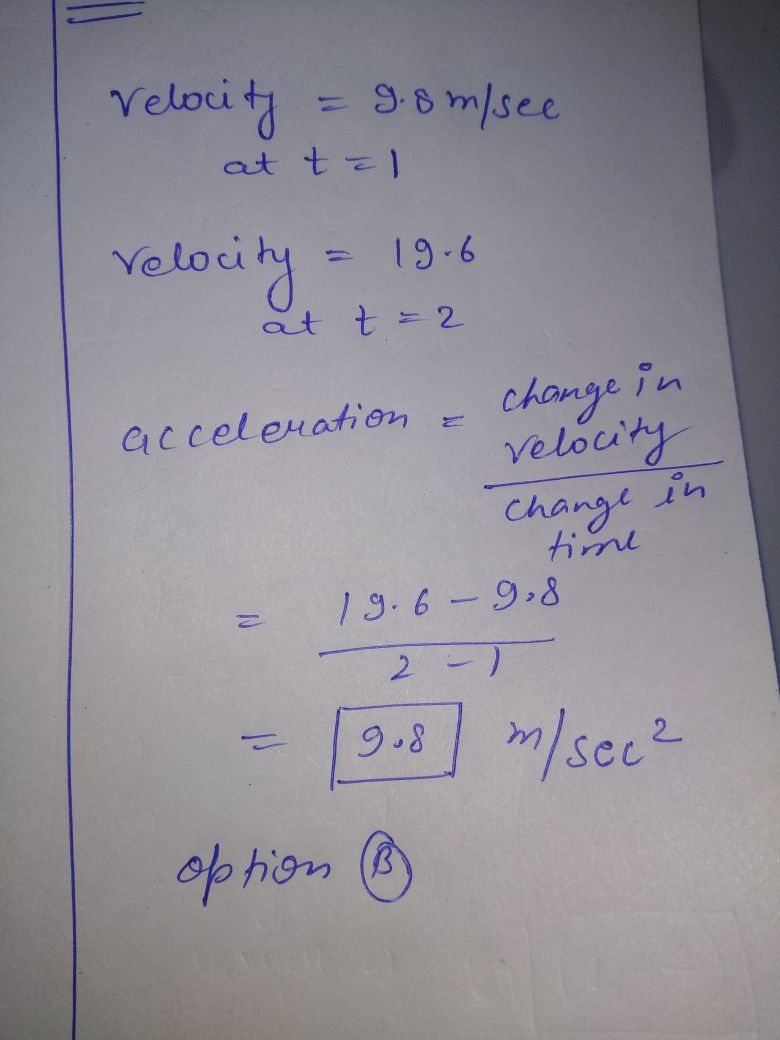 Velocity = 9.8 m/sec
at t = 1
Velocity = 19.6
at t = 2
acceleration = change in
velocity
change in
time
= 19.6 - 9.8
2 - 1
= 9.8 m/sec²
option B